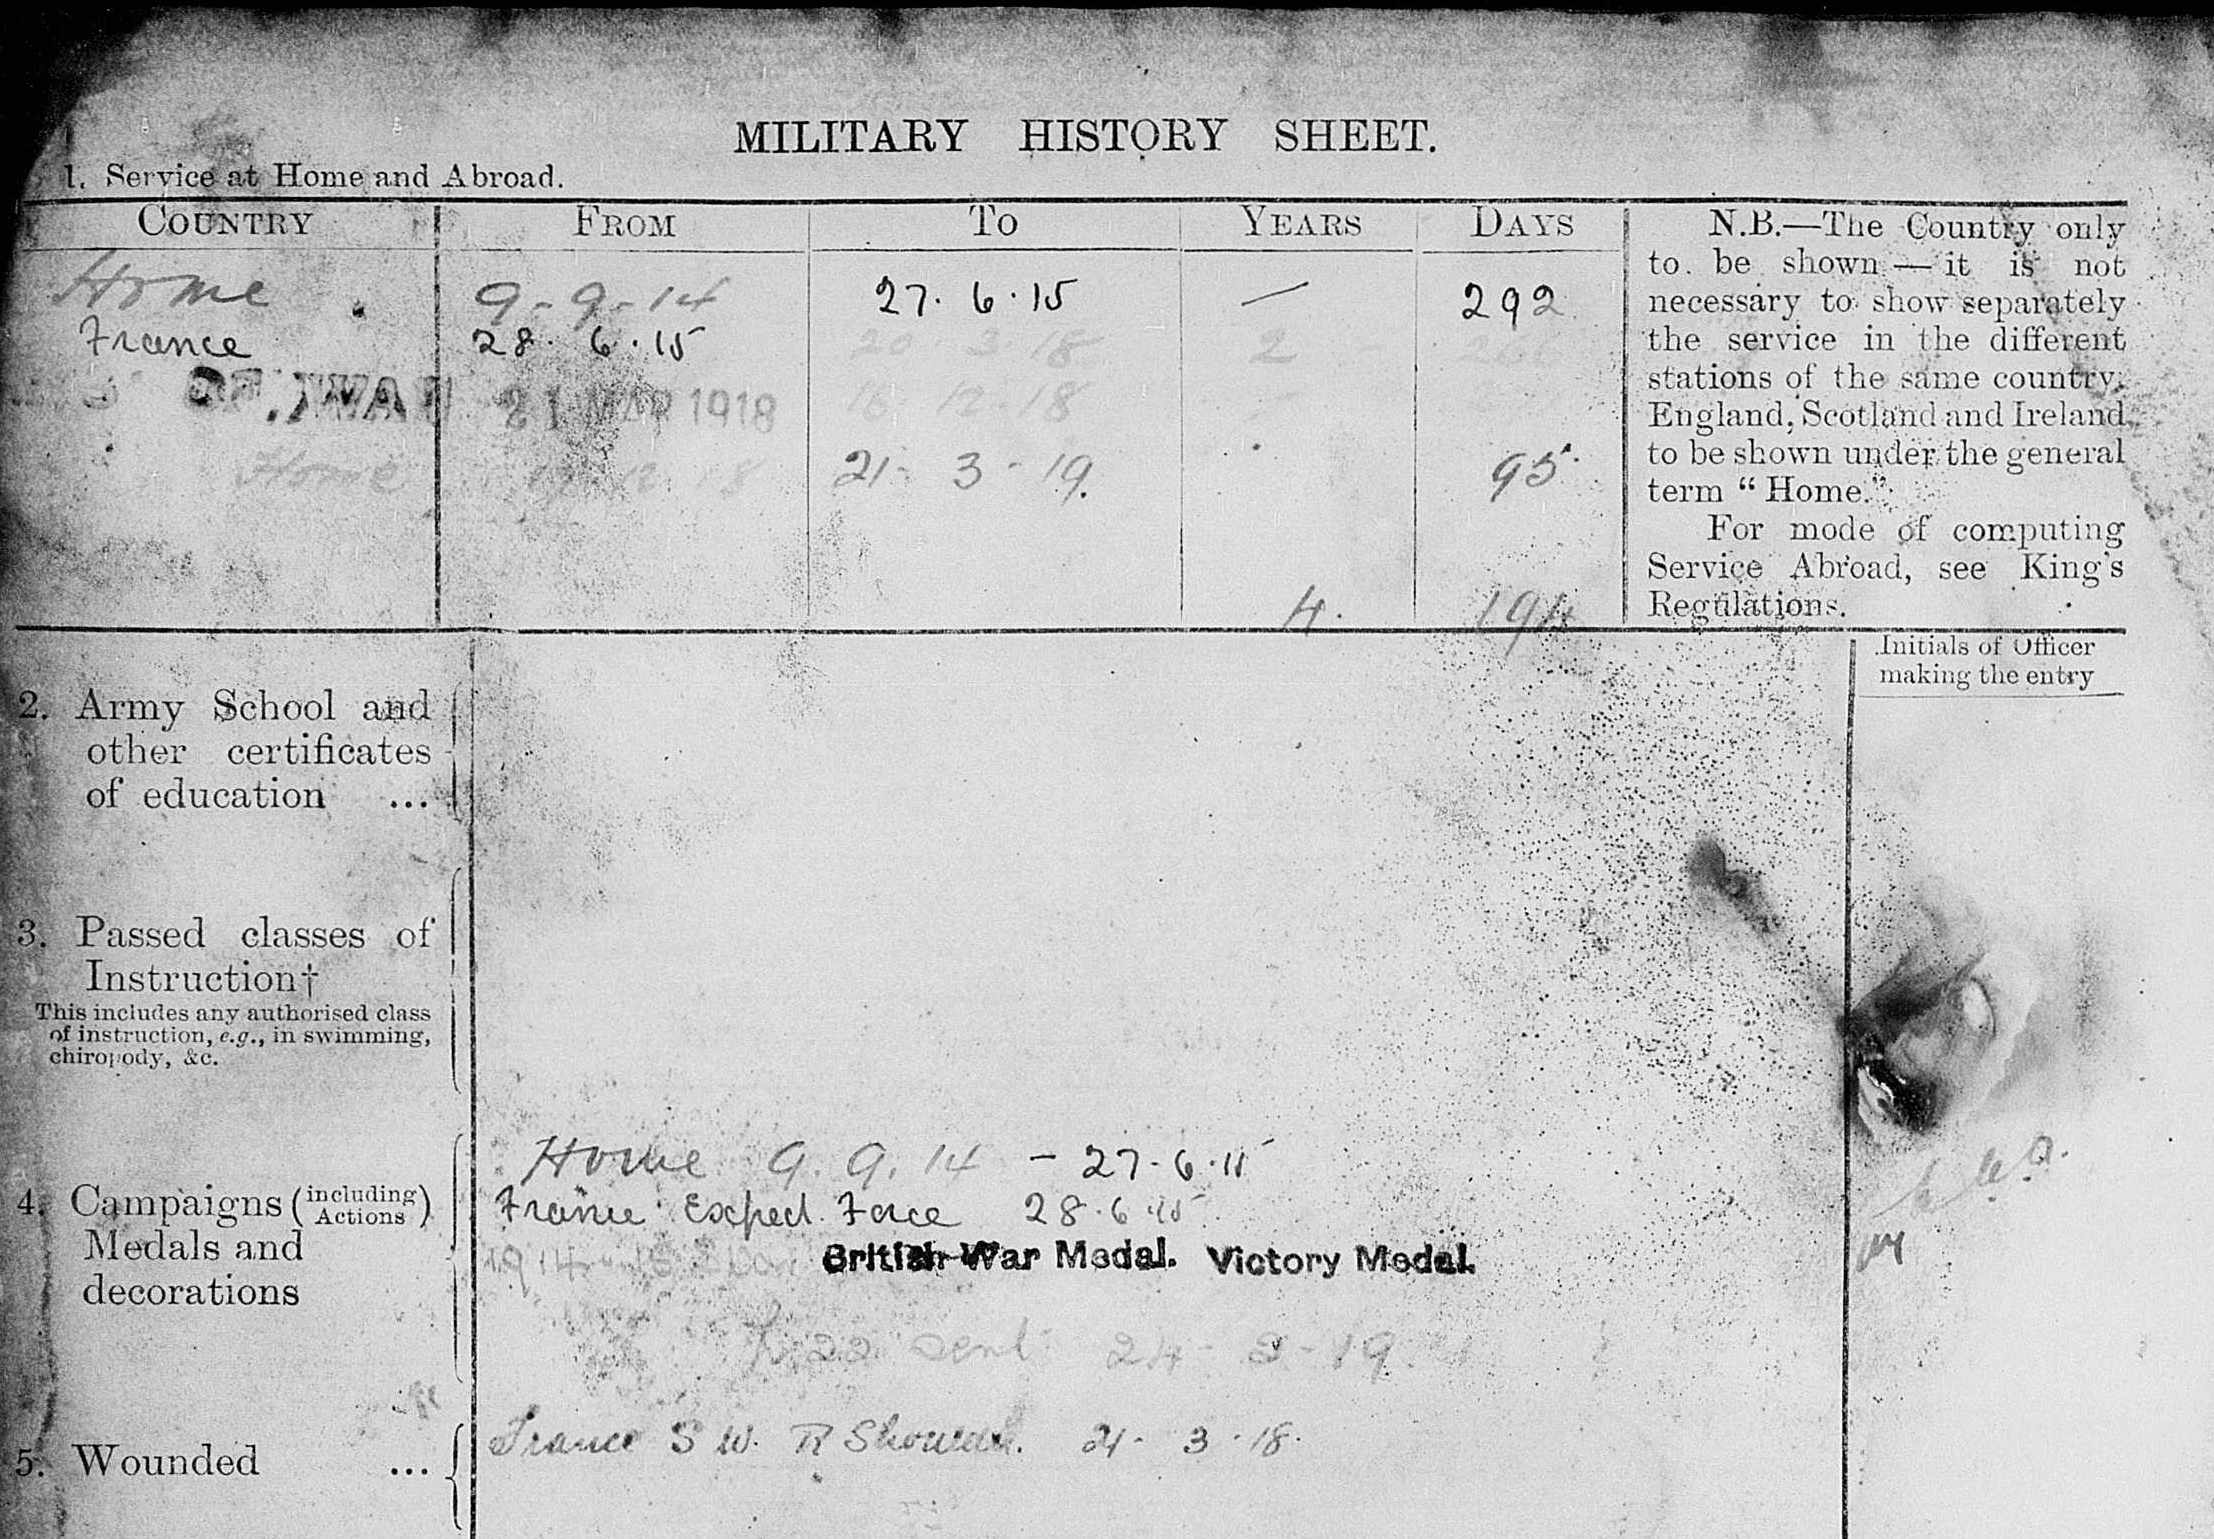 MILITARY HISTORY SHEET.
1. Service at Home and Abroad.
COUNTRY FROM TO YEARS DAYS
Home 9-9-14 27.6.15 — 292
France 28.6.15 20 3 18 2 266
OF WAR 21 MAR 1918 16 12 18
Home 17 12 18 21-3-19. 95
4. 194
N.B.—The Country only
to be shown—it is not
necessary to show separately
the service in the different
stations of the same country.
England, Scotland and Ireland
to be shown under the general
term “Home.”
For mode of computing
Service Abroad, see King's
Regulations.
Initials of Officer
making the entry
2. Army School and
other certificates
of education ...
3. Passed classes of
Instruction†
This includes any authorised class
of instruction, e.g., in swimming,
chiropody, &c.
4. Campaigns (including Actions)
Medals and
decorations
Home 9.9.14 - 27.6.15
France Exped. Force 28.6.15
1914-15 Star British War Medal. Victory Medal.
sent 24-3-19.
5. Wounded ...
France S W. R Shoulder. 21-3.18.